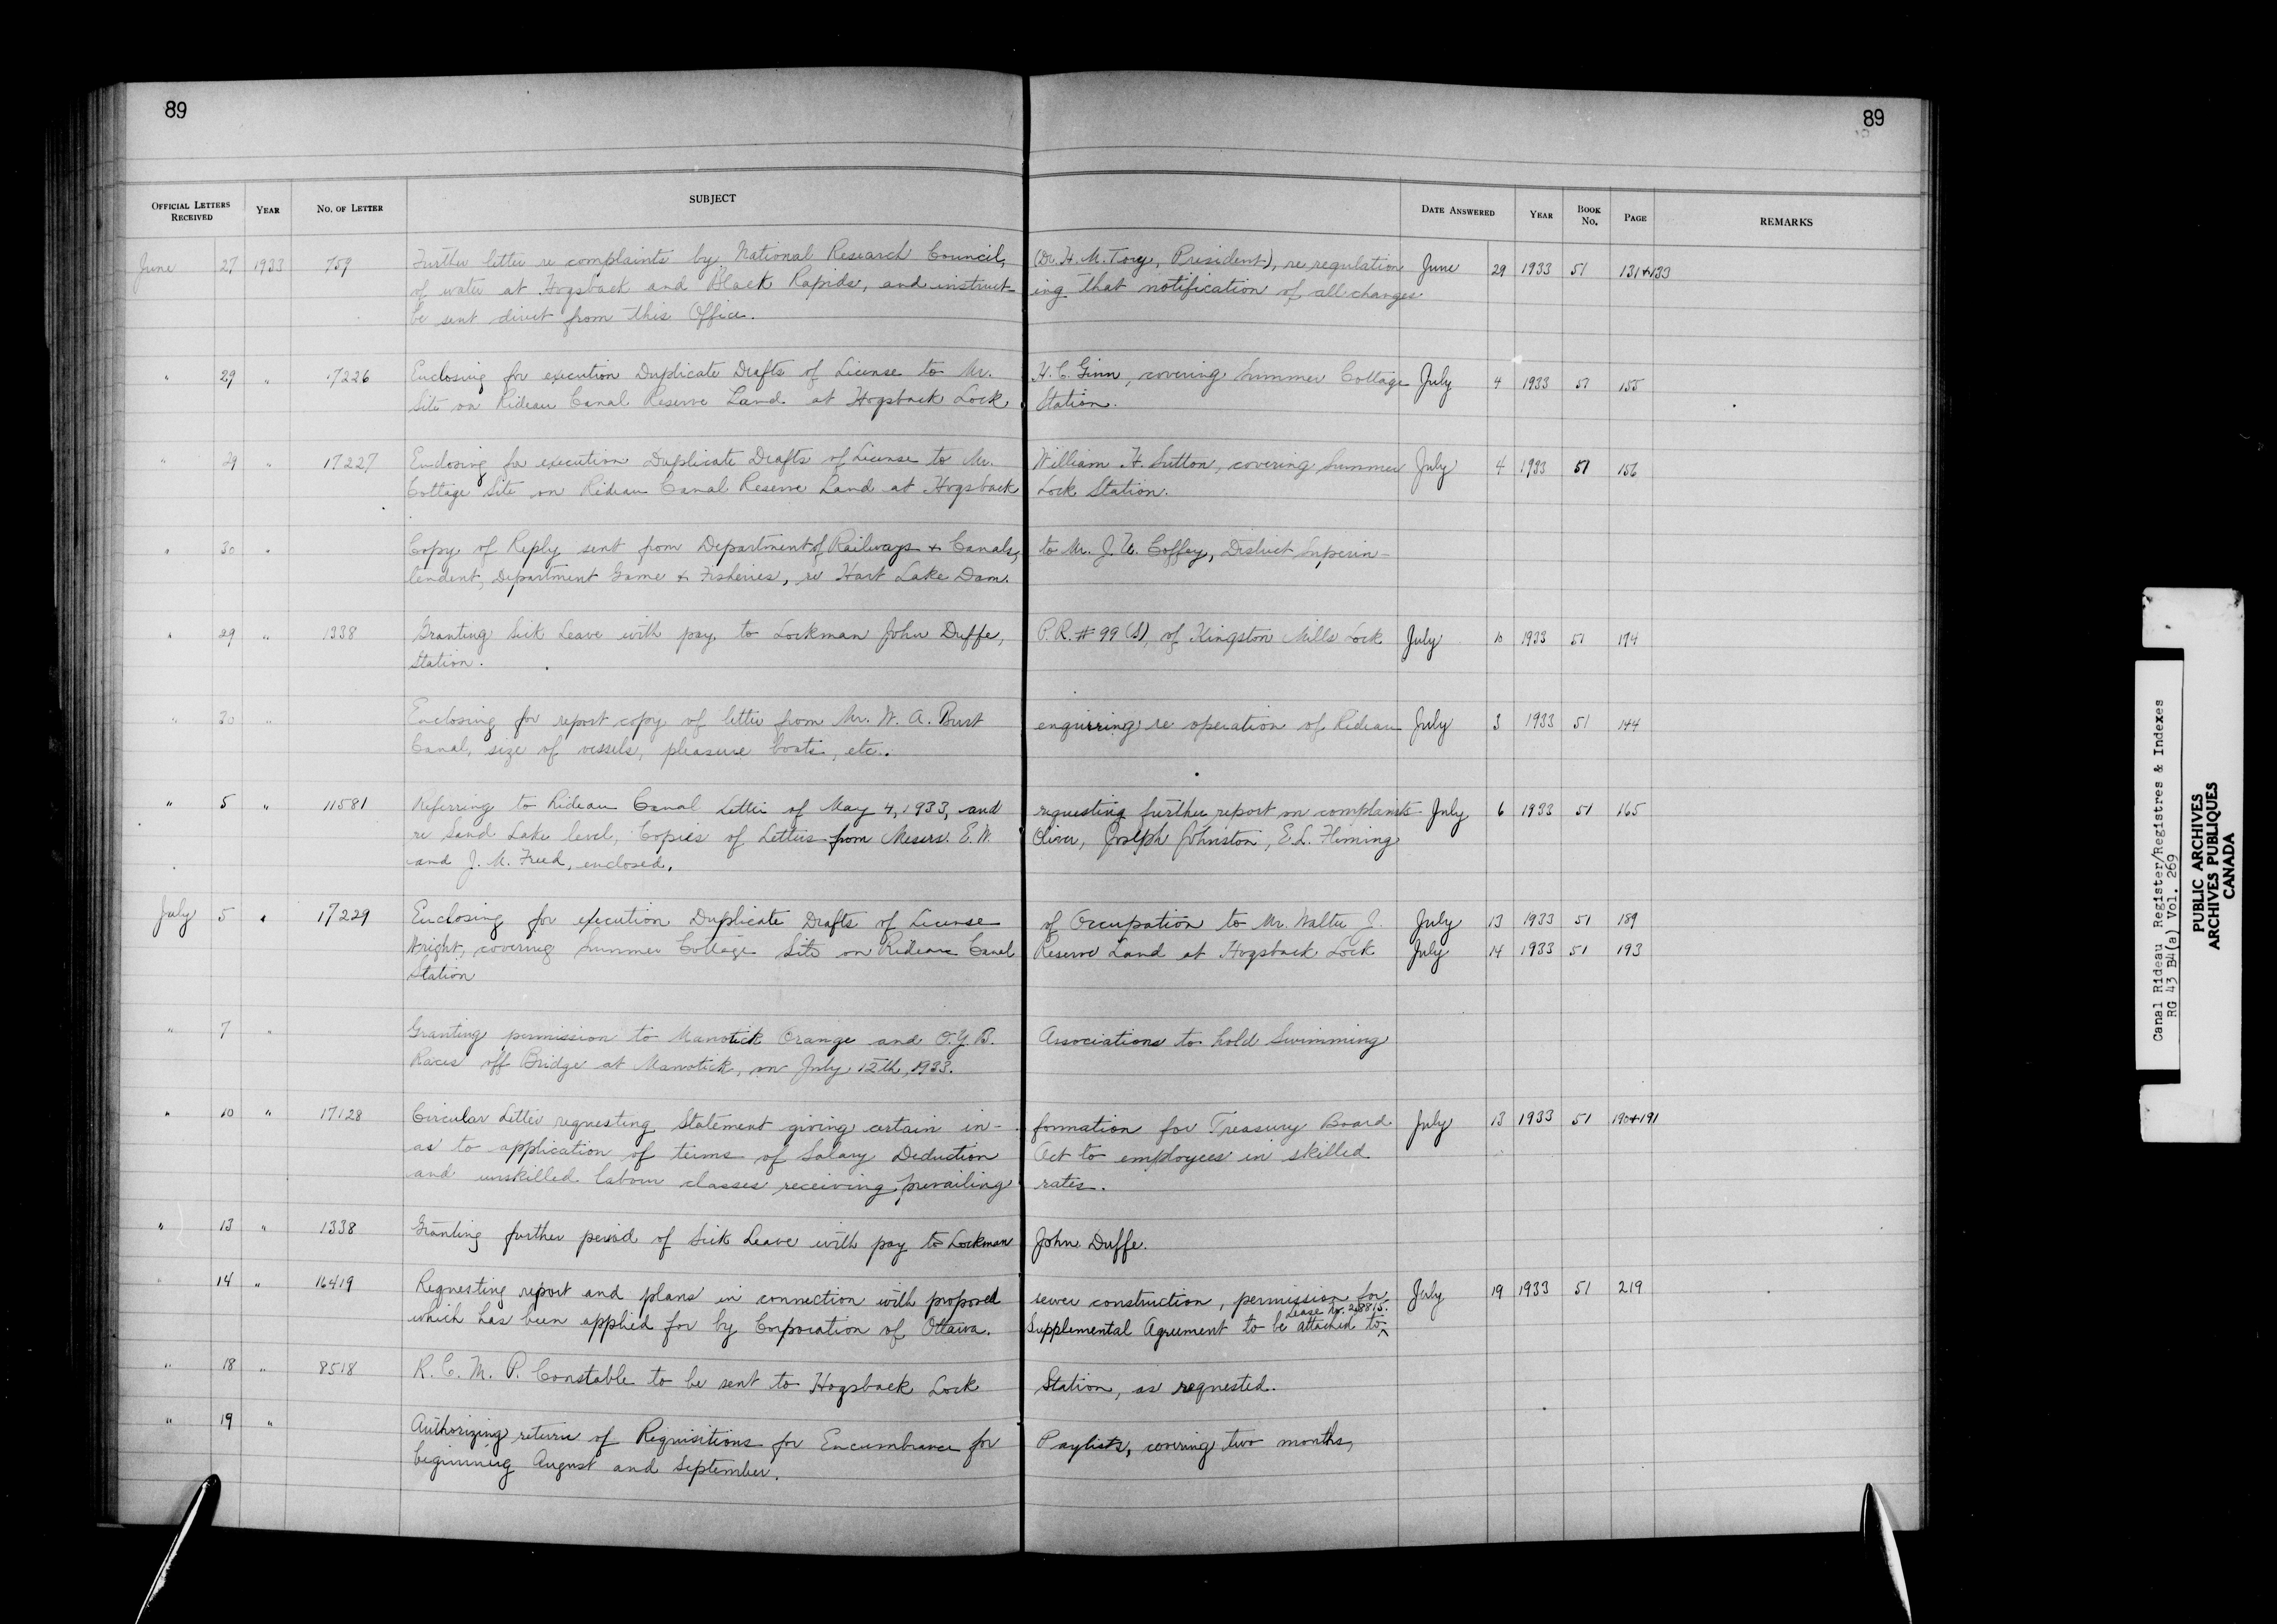 89
89
OFFICIAL LETTERS RECEIVED YEAR NO. OF LETTER SUBJECT DATE ANSWERED YEAR BOOK NO. PAGE REMARKS
June 27 1933 759 Further letter re complaints by National Research Council, (Dr. H. M. Tory, President), re regulation June 29 1933 51 131+133
of water at Hogsback and Black Rapids, and instruct- ing that notification of all changes
be sent direct from this Office.
" 29 " 17226 Enclosing for execution Duplicate Drafts of License to Mr. H. C. Ginn, covering Summer Cottage July 4 1933 51 155
Site on Rideau Canal Reserve Land at Hogsback Lock Station.
" 29 " 17227 Enclosing for execution Duplicate Drafts of License to Mr. William H. Sutton, covering Summer July 4 1933 51 156
Cottage Site on Rideau Canal Reserve Land at Hogsback Lock Station.
" 30 " Copy of Reply sent from Department of Railways & Canals, to Mr. J. W. Coffey, District Superin-
tendent, Department Game & Fisheries, re Hart Lake Dam.
" 29 " 1338 Granting Sick Leave with pay to Lockman John Duffe, P.R. # 99 (S), of Kingston Mills Lock July 10 1933 51 174
Station.
" 30 " Enclosing for report copy of letter from Mr. W. A. Burt enquiring re operation of Rideau July 3 1933 51 144
Canal, size of vessels, pleasure boats, etc.
" 5 " 11581 Referring to Rideau Canal Letter of May 4, 1933, and requesting further report on complaints July 6 1933 51 165
re Sand Lake level, Copies of Letters from Messrs. E. W. Oliver, Joseph Johnston, E. L. Fleming
and J. M. Freed, enclosed.
July 5 " 17229 Enclosing for execution Duplicate Drafts of License of Occupation to Mr. Walter J. July 13 1933 51 189
Wright, covering Summer Cottage Site on Rideau Canal Reserve Land at Hogsback Lock July 14 1933 51 193
Station
" 7 " Granting permission to Manotick Orange and O.Y.B. Associations to hold Swimming
Races off Bridge at Manotick, on July 12th, 1933.
" 10 " 17128 Circular Letter requesting Statement giving certain in- formation for Treasury Board July 13 1933 51 190+191
as to application of terms of Salary Deduction Act to employees in skilled
and unskilled labour classes receiving prevailing rates.
" 13 " 1338 Granting further period of Sick Leave with pay to Lockman John Duffe.
" 14 " 16419 Requesting report and plans in connection with proposed sewer construction, permission for July 19 1933 51 219
Lease No. 28815.
which has been applied for by Corporation of Ottawa. Supplemental Agreement to be attached to ^
" 18 " 8518 R. C. M. P. Constable to be sent to Hogsback Lock Station, as requested.
" 19 " Authorizing return of Requisitions for Encumbrance for Paylists, covering two months,
beginning August and September.
Canal Rideau Register/Registres & Indexes
RG 43 B4(a) Vol. 269
PUBLIC ARCHIVES
ARCHIVES PUBLIQUES
CANADA